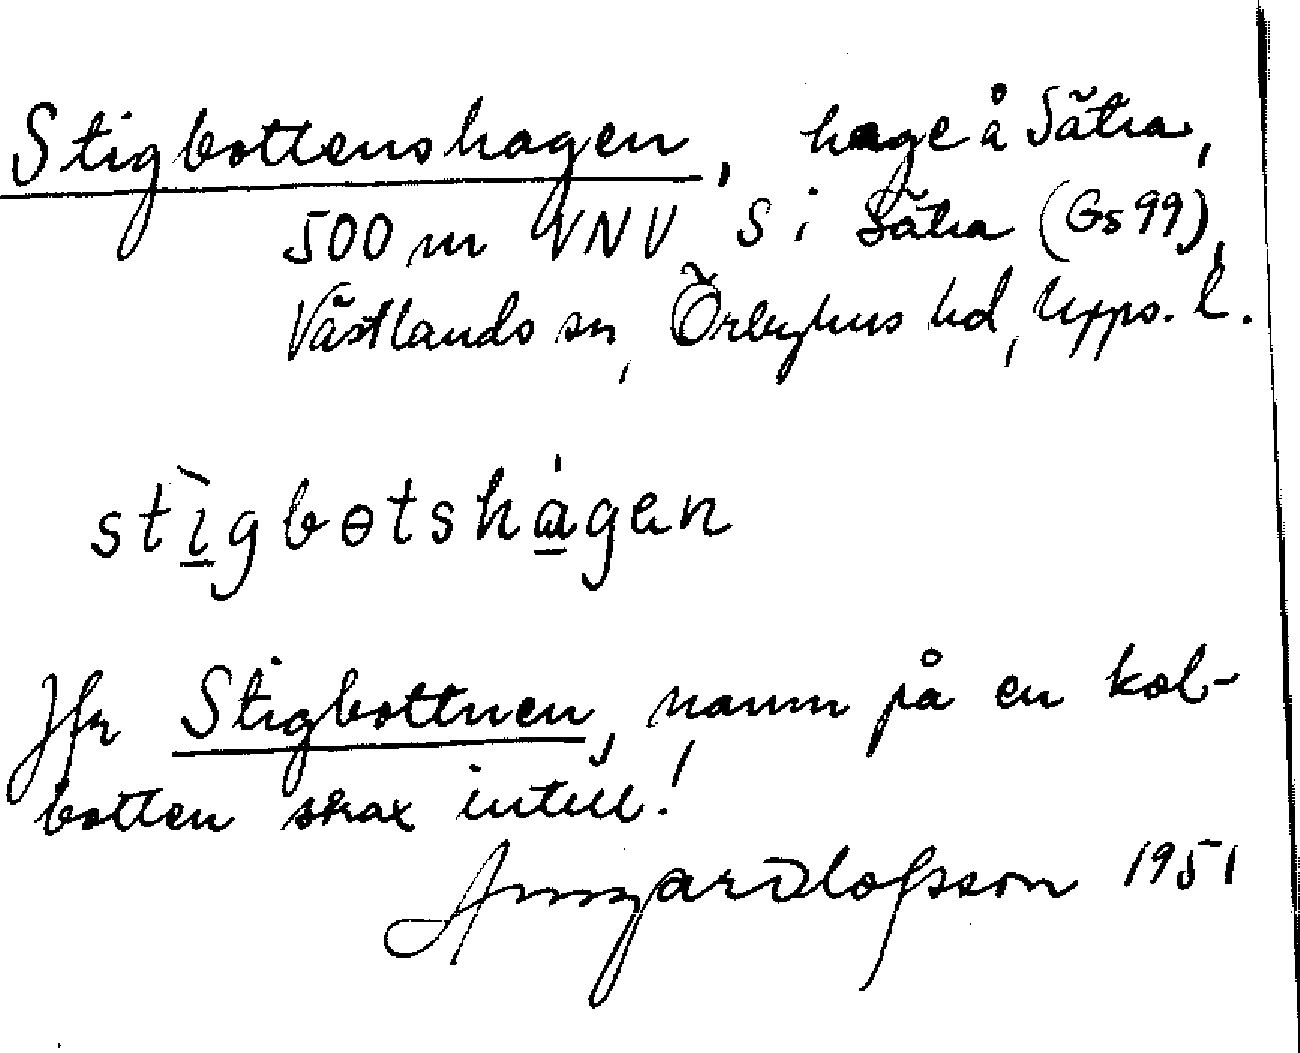 Stigbottenshagen, hage å Sätra,
500 m VNV S i Sätra (Gs 99),
Västlands sn, Örbyhus hd, Upps. l.
stìgbɵtshágan
Jfr Stigbottnen, namn på en kol-
botten strax intill!
Olofsson 1951